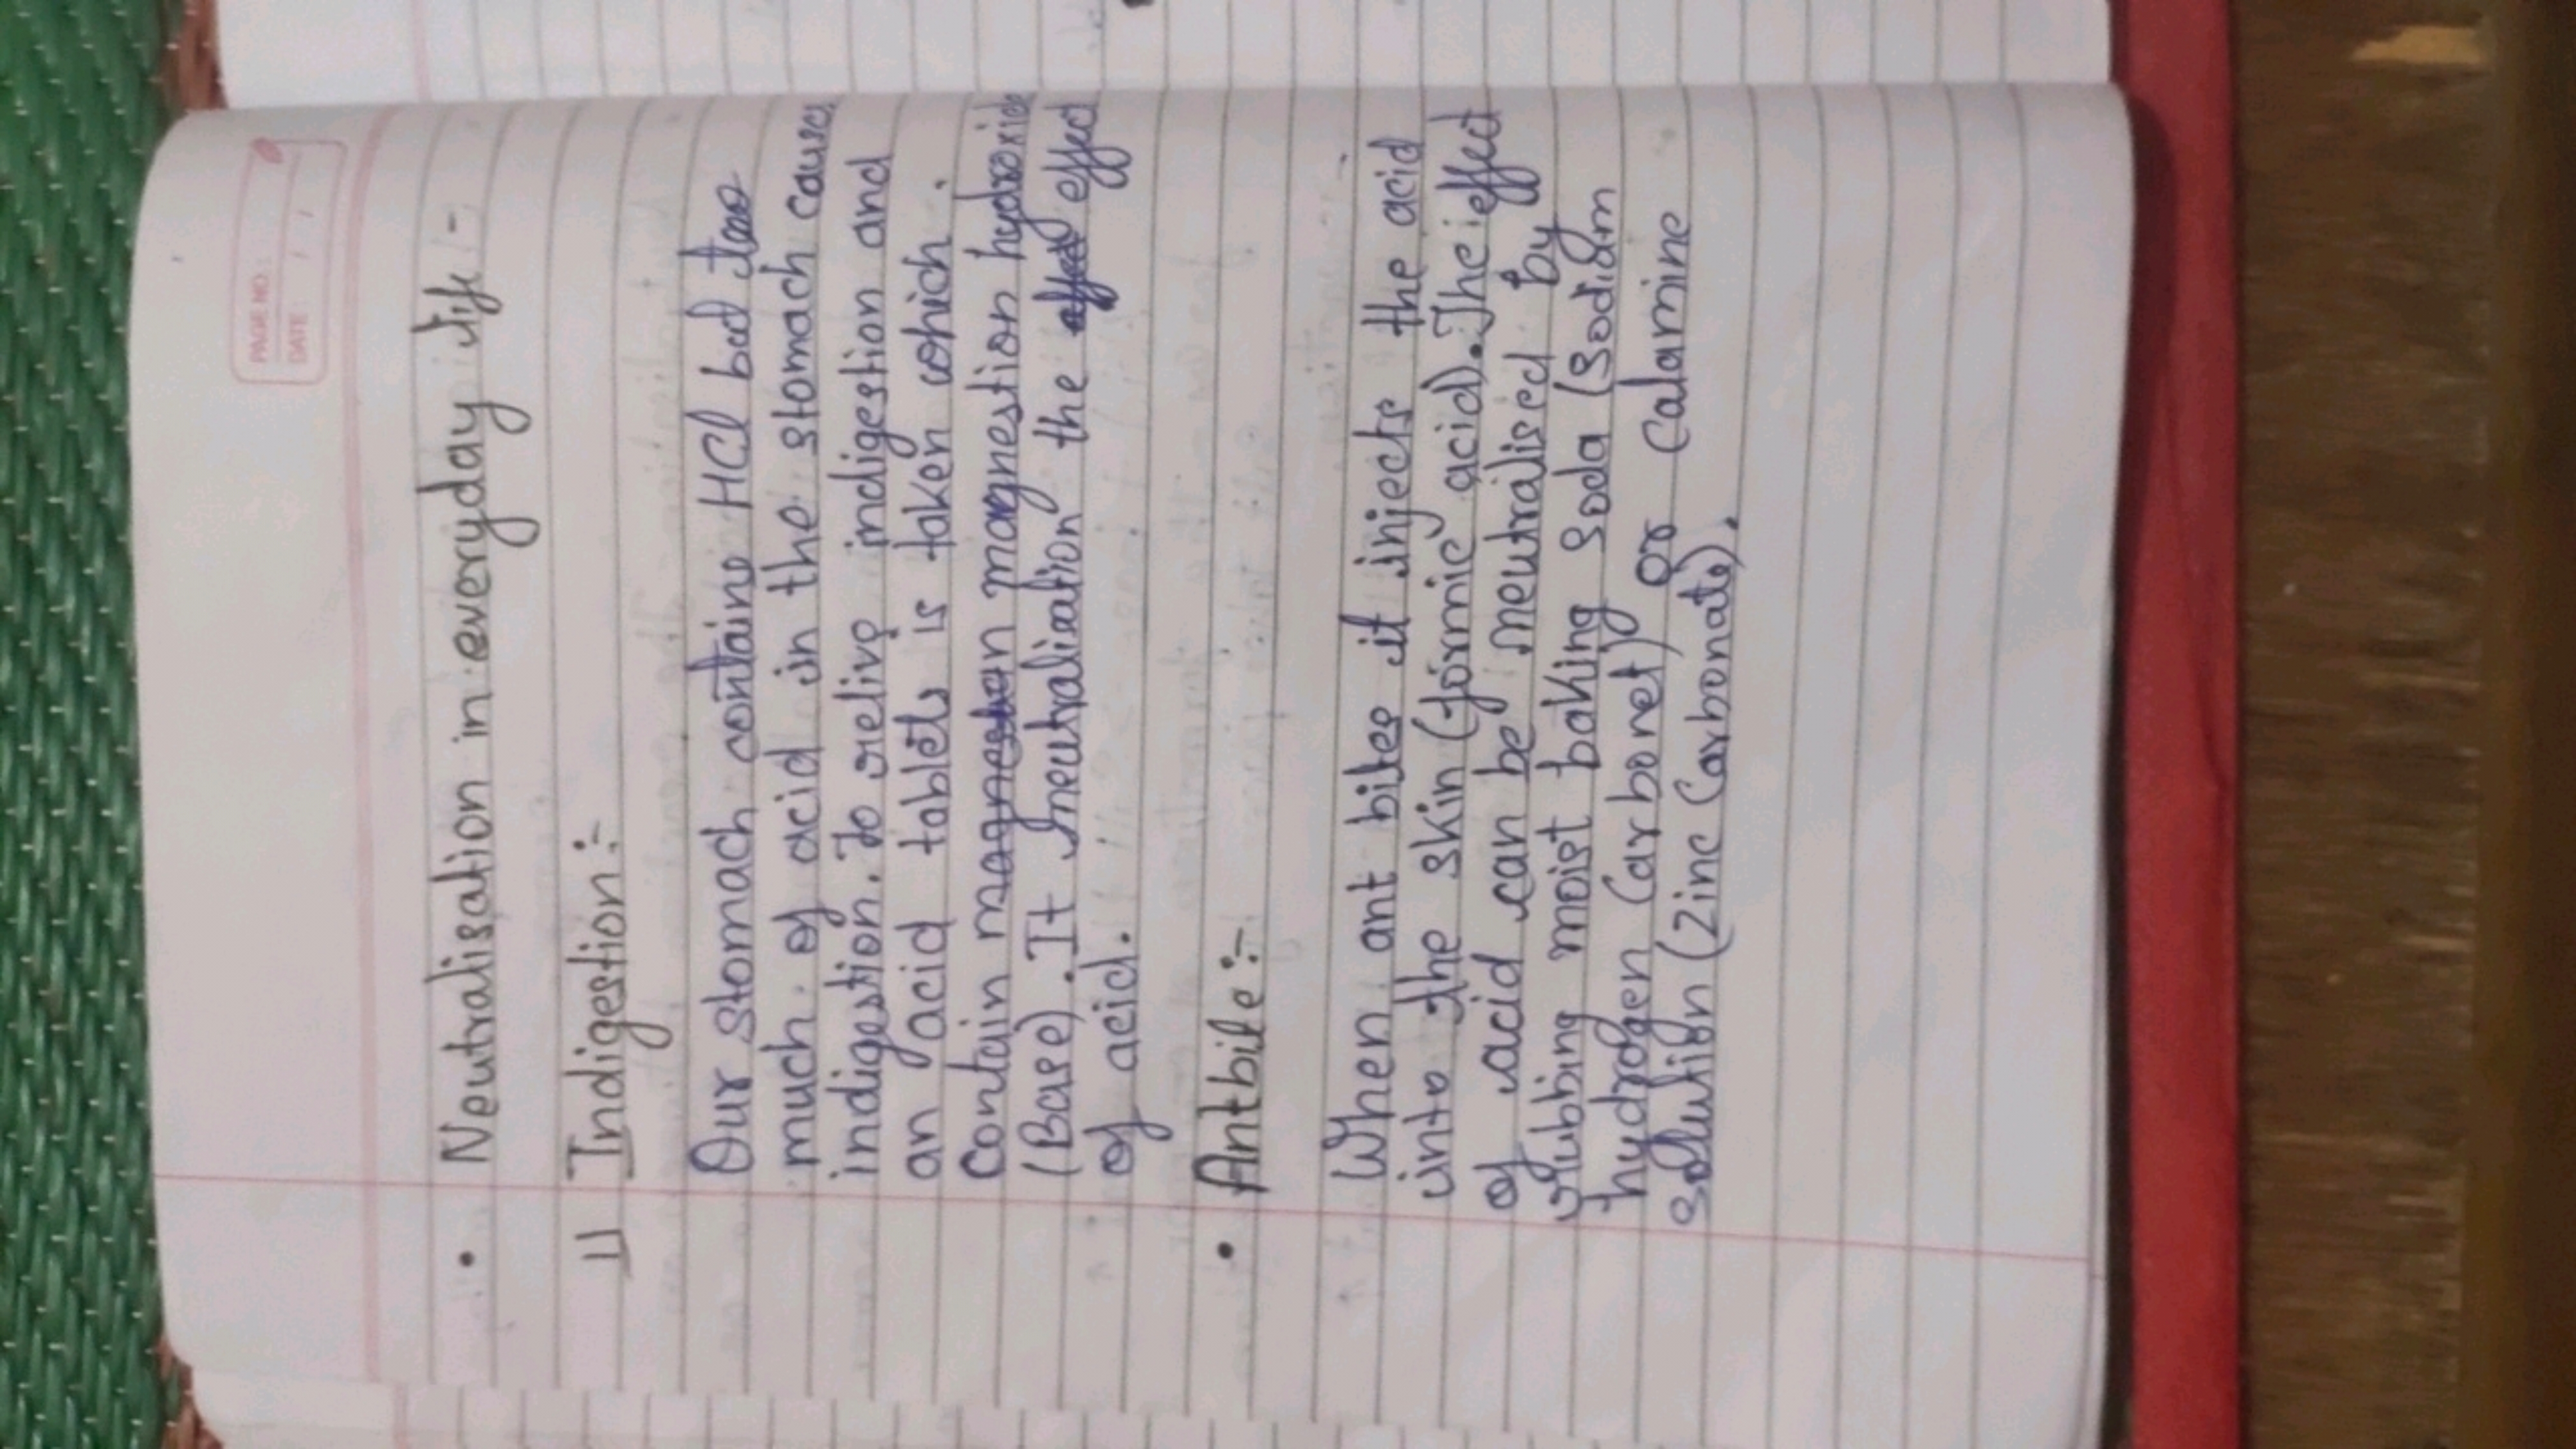 PAGE NO.:
DATE: / /
• Neutralisation in everyday life :-
1) Indigestion :-
Our stomach contains HCl but too
much of acid in the stomach cause
indigestion. To relive indigestion and
an acid tablets is taken which.
Contain magnestion hydroxide
(Base). It neutraliation the effect
of acid.
• Antbite :-
When ant bites it injects the acid
into the skin (formic acid). The effect
of acid can be neutralised by
rubbing moist baking soda (Sodium
hydrogen Carbonet) or Calamine
Solution (Zinc Carbonate).